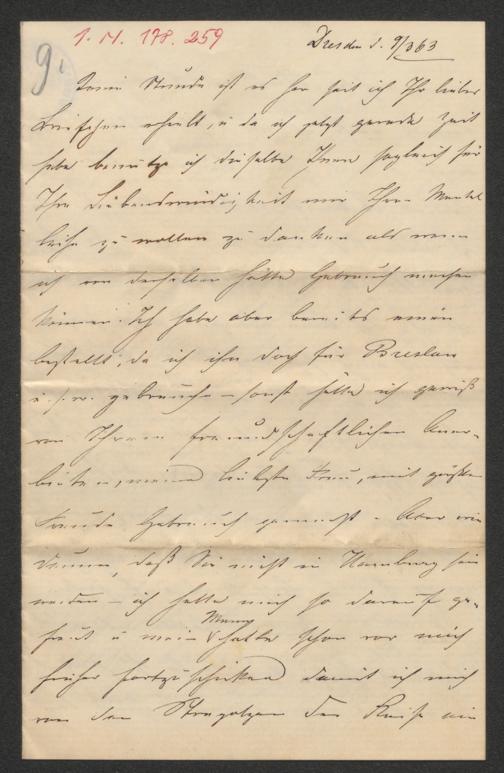 1. N. 178. 259
Dresden d. 9/3 63
9.
Keine Stunde ist es her seit ich Ihr liebes
Briefchen erhielt, u da ich jetzt gerade Zeit
habe benutze ich dieselbe Ihnen sogleich für
Ihre Liebenswürdigkeit mir Ihren Mantel
leihen zu wollen zu danken als wenn
ich von derselben hätte Gebrauch machen
können. Ich habe aber bereits einen
bestellt, da ich ihn doch für Breslau
u. s. w. gebrauche – sonst hätte ich gewiß
von Ihrem freundschaftlichen Aner-
bieten, meine liebste Frau, mit größter
Freude Gebrauch gemacht. – Aber wie
dumm, daß Sie nicht in Hamburg sein
werden – ich hatte mich so darauf ge-
freut u mein Mann hatte schon vor mich
früher fortzuschicken damit ich mich
von den Strapatzen der Reise ein